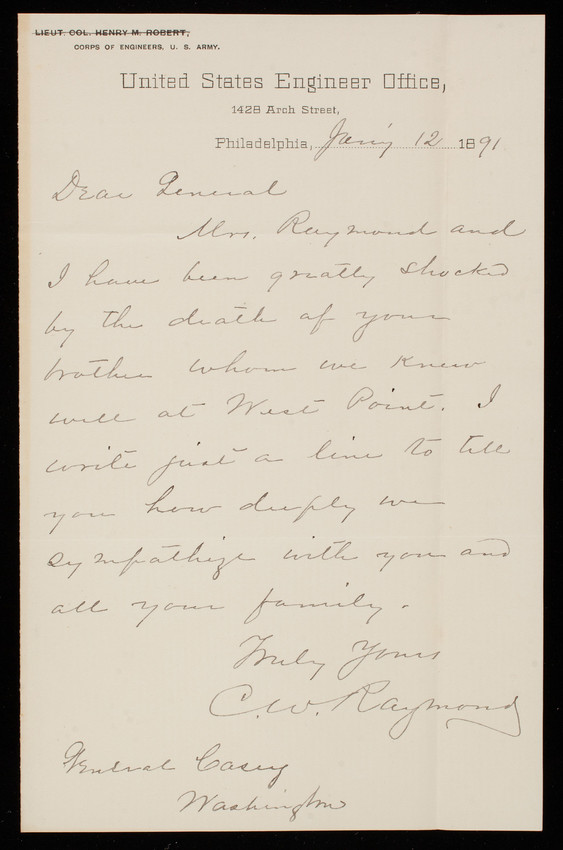 LIEUT. COL. HENRY M. ROBERT,
CORPS OF ENGINEERS, U. S. ARMY.
United States Engineer Office,
1428 Arch Street,
Philadelphia, Jan'y 12 1891
Dear General
Mrs. Raymond and
I have been greatly shocked
by the death of your
brother whom we knew
well at West Point. I
write just a line to tell
you how deeply we
sympathize with you and
all your family.
Truly Yours
C. W. Raymond
General Casey
Washington